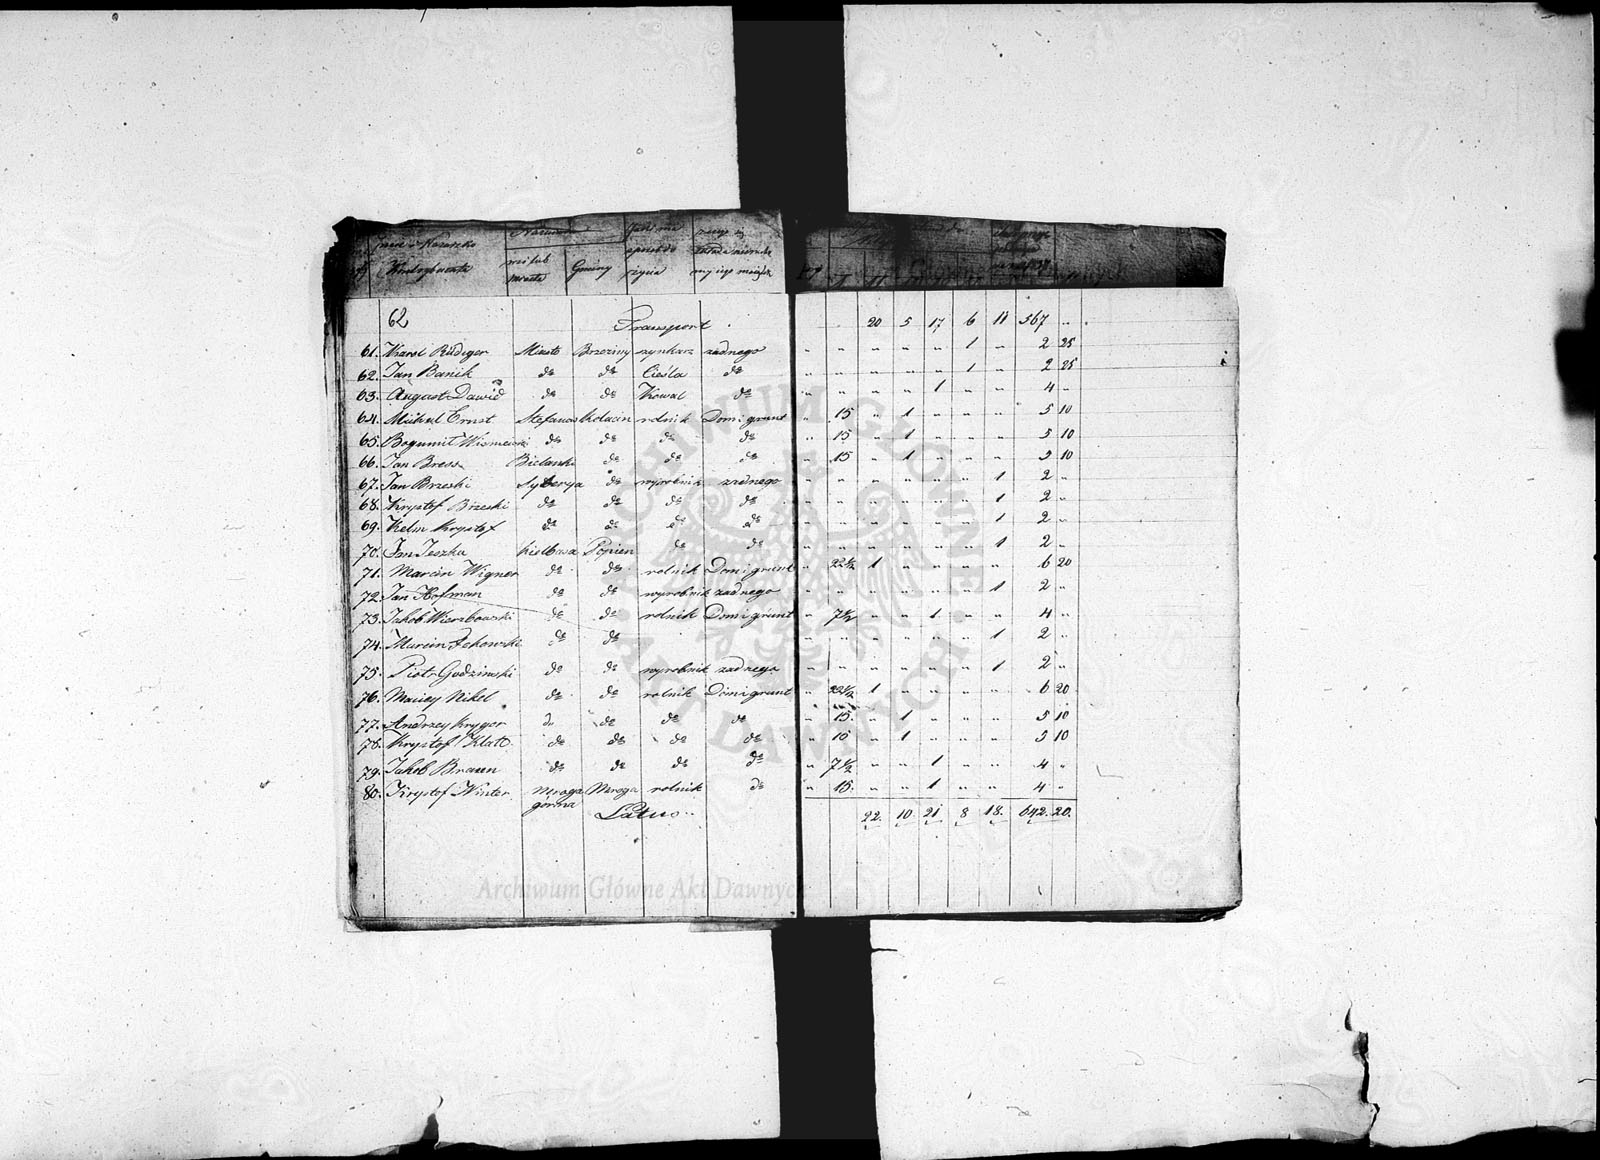 Nazwisko
Imie i Nazwisko
Kontrybuenta
wsi lub
miasta
Gminy
sposób do
życia
62 Transport 20 5 17 6 11 567 "
61. Karol Rüdiger Miasto Brzeziny szynkarz żadnego " " " " " 1 " 2 25
62. Jan Banik do do Cieśla do " " " " " 1 " 2 25
63. August Dawid do do Kowal do " " " " 1 " " 4 "
64. Michał Ernst Stefanów Kołacin rolnik Domi grunt " 15 " 1 " " " 5 10
65. Bogumił Wiśniewski do do do do " 15 " 1 " " " 5 10
66. Jan Bress Bielanki do do do " 15 " 1 " " " 5 10
67. Jan Brzeski Syberya do wyrobnik żadnego " " " " " " 1 2 "
68. Krysztof Brzeski do do do do " " " " " " 1 2 "
69. Kelm Krysztof do do do do " " " " " " 1 2 "
70. Jan Jeszka Kiełbasa Popien do do " " " " " " 1 2 "
71. Marcin Wigner do do rolnik Domi grunt " 22½ 1 " " " " 6 20
72. Jan Hofman do do wyrobnik żadnego " " " " " " 1 2 "
73. Jakób Wierzbowski do do rolnik Domi grunt " 7½ " " 1 " " 4 "
74. Marcin do do " " " " " " 1 2 "
75. Piotr Godzinski do do wyrobnik żadnego " " " " " " 1 2 "
76. Maciey Nikel do do rolnik Domi grunt " 22½ 1 " " " " 6 20
77. Andrzey Kryger do do do do " 15 " 1 " " " 5 10
78. Krysztof Klatt do do do do " 15 " 1 " " " 5 10
79. Jakób Braun do do do do " 7½ " " 1 " " 4 "
80. Krysztof Winter Mroga Mroga rolnik do " 15 " " 1 " " 4 "
górna
Latus 22. 10 21 8 18. 642. 20.
ARCHIWUM GŁÓWNE AKT DAWNYCH
Archiwum Główne Akt Dawnych